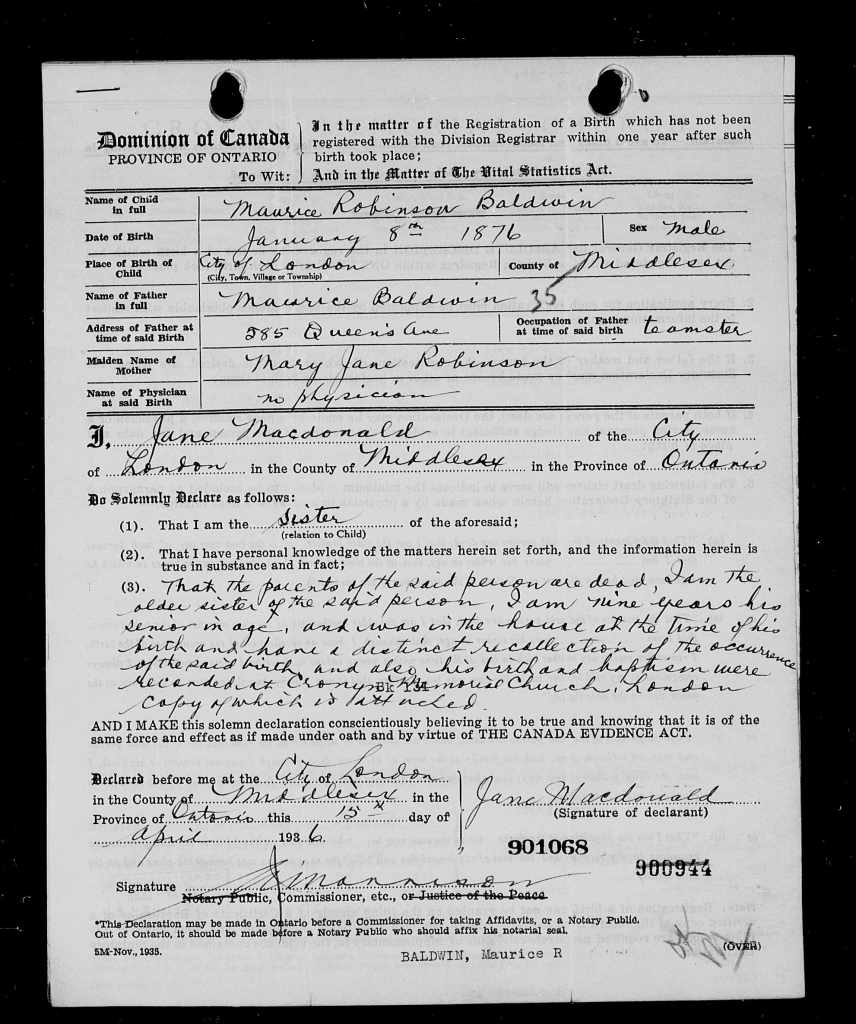 Dominion of Canada
PROVINCE OF ONTARIO
To Wit:
In the matter of the Registration of a Birth which has not been
registered with the Division Registrar within one year after such
birth took place;
And in the Matter of The Vital Statistics Act.
Name of Child in full Maurice Robinson Baldwin
Date of Birth January 8th 1876 Sex Male
Place of Birth of Child City of London County of Middlesex
(City, Town, Village or Township)
Name of Father in full Maurice Baldwin 35
Address of Father at time of said Birth 585 Queen's Ave Occupation of Father at time of said birth teamster
Maiden Name of Mother Mary Jane Robinson
Name of Physician at said Birth no physician
I, Jane Macdonald of the City
of London in the County of Middlesex in the Province of Ontario
Do Solemnly Declare as follows:
(1). That I am the Sister of the aforesaid;
(relation to Child)
(2). That I have personal knowledge of the matters herein set forth, and the information herein is
true in substance and in fact;
(3). That the parents of the said person are dead, I am the
older sister of the said person, I am nine years his
senior in age, and was in the house at the time of his
birth and have a distinct recollection of the occurrence
of the said birth, and also his birth and baptism were
recorded at Cronyn Memorial Church, London
copy of which is attached.
AND I MAKE this solemn declaration conscientiously believing it to be true and knowing that it is of the
same force and effect as if made under oath and by virtue of THE CANADA EVIDENCE ACT.
Declared before me at the City of London
in the County of Middlesex in the
Province of Ontario this 15 day of
April 1936.
Jane Macdonald
(Signature of declarant)
901068
900944
Signature
Notary Public, Commissioner, etc., or Justice of the Peace
*This Declaration may be made in Ontario before a Commissioner for taking Affidavits, or a Notary Public.
Out of Ontario, it should be made before a Notary Public who should affix his notarial seal.
5M-Nov., 1935.
(OVER)
BALDWIN, Maurice R